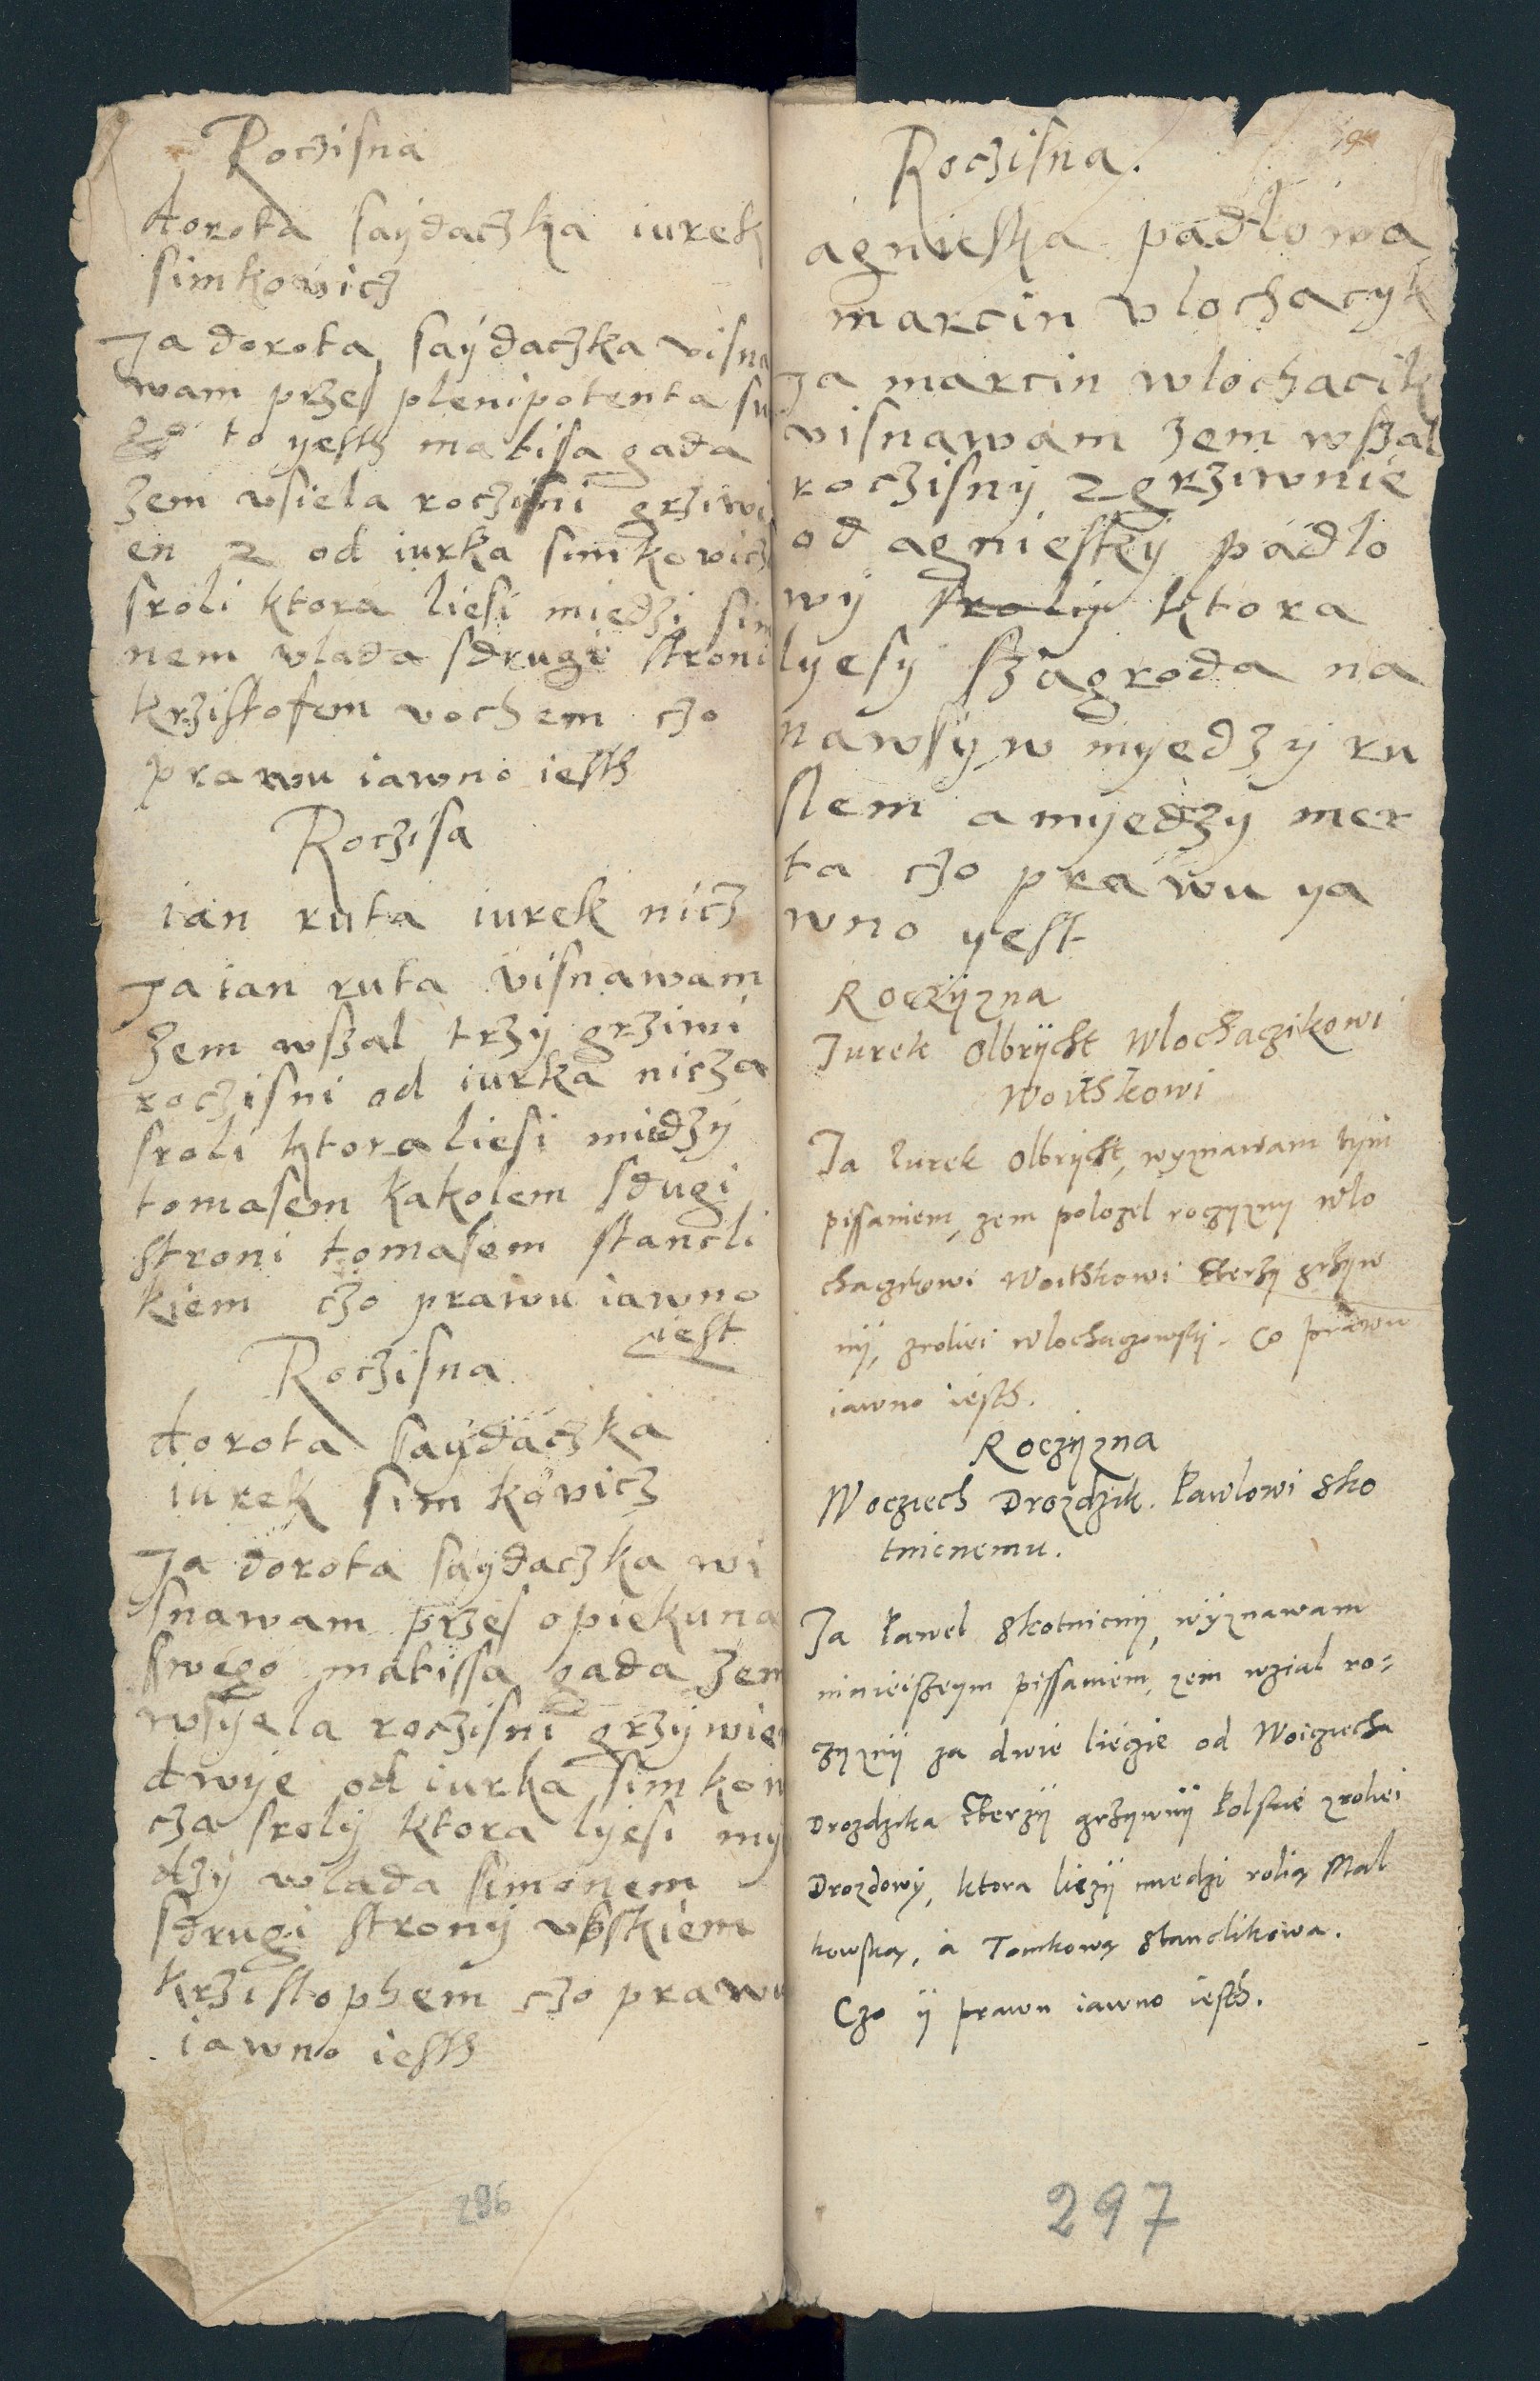 Roczisna
dorota saÿdaczka iurek
simkowicz
Ja dorota saÿdaczka visna
wam przes plenipotenta su
to yesth matisa gada
zem vsiela roczisni grziwi
en 2 od iurka simkowicz
sroli ktora liesi miedzi sim
nem vlada sdrugi stroni
krzistofem vochem czo
prawu iawno iesth
Roczisa
ian ruta iurek nicz
Ja ian ruta visnawam
zem wszal trzy grziwi
roczisni od iurka nicza
sroli ktora liesi miedzÿ
tomasem kakolem sdugi
stroni tomasem stancli
kiem czo prawu iawno
iest
Roczisna
dorota saÿdaczka
iurek simkowicz
Ja dorota saydaczka wi
snawam przes opiekuna
swego matissa gada zem
wsÿela roczisni grzÿwie
dwÿe od iurka simkow
cza srolÿ ktora lÿesi mÿ
dzÿ wlada simonem
sdrugi stronÿ vbskiem
krzistophem czo prawu
iawno iesth
286
Roczisna.
agnieska padlowa
marcin vlochacyk
Ja marcin wlochacik
visnawam zem wszal
roczisnÿ 2 grziwnie
od agnieskÿ padlo
wÿ srolÿ ktora
lyesÿ szagroda na
nawsÿ w mÿedzÿ ru
slem a mÿedzÿ mer
ta czo prawu ya
wno yest
Roczÿzna
Jurek Olbrÿcht Wlochaczikowi
Woithkowi
Ja Jurek Olbrÿcht, wyznawam tÿm
pissaniem, zem polozel roczyzny Wlo
chaczikowi Woithkowi cterzÿ grzÿw
nÿ, zroliei Wlochaczowskÿ. Co prawu
iawno iesth.
Roczÿzna
Wocziech Drozdzik. Pawlowi Sko
tnicnemu.
Ja Pawel Skotnicnÿ, wÿznawam
ninieiszeym pissaniem, zem wzial ro=
czyznÿ za dwie liécie od Woiciecha
Drozdzika cterzÿ grzÿwnÿ Polskié zroliei
Drozdowÿ, ktora liezÿ miedzi rolią Mal
kowską, a Tomkową Stanclikowa.
Czo ÿ prawu iawno iesth.
297